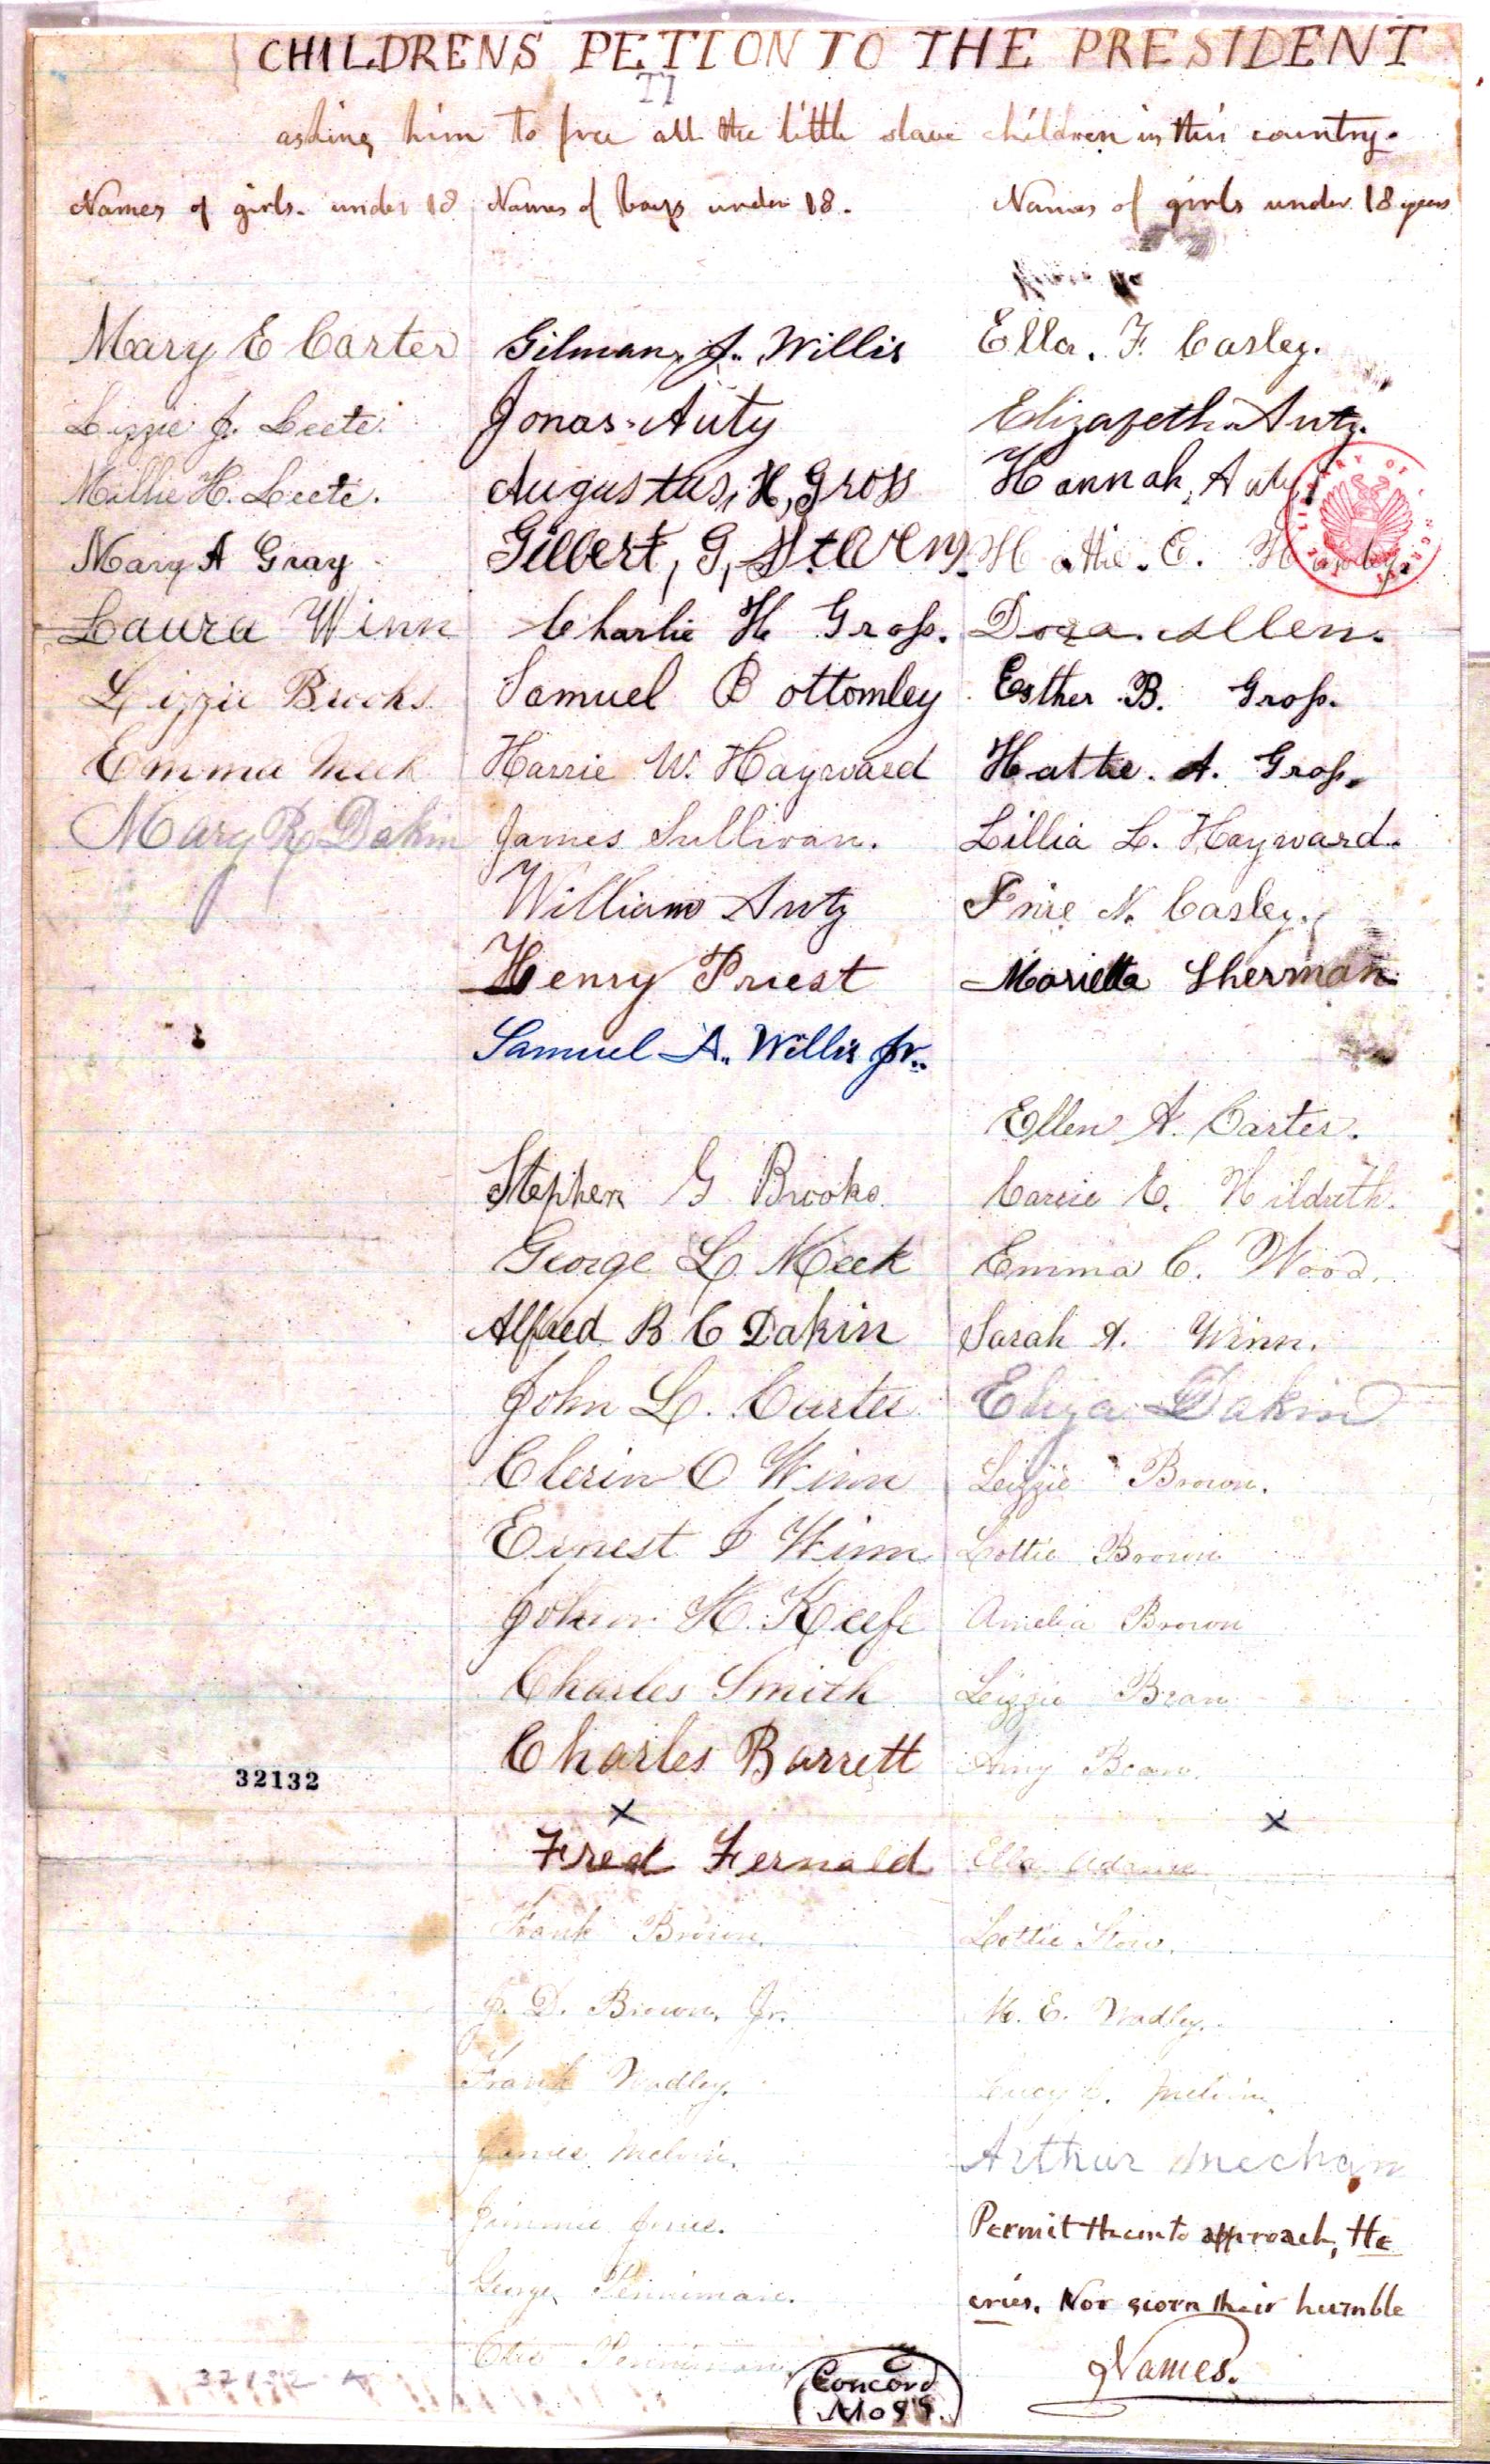 CHILDRENS PETION TO THE PRESIDENT
TI
asking him to free all the little slave children in this country.
Names of girls. under 18
Mary E Carter
Lizzie J. Leete.
Millie H. Leete.
Mary A Gray
Laura Winn
Lizzie Brooks.
Emma Meek
Mary R Dakin
32132
Names of boys under 18.
Gilman, J. Willis
Jonas Auty
Augustus, H, Gross
Gilbert, G,
Charlie H Gross.
Samuel Bottomley
Harrie W. Hayward
James Sullivan.
William Auty
Henry Priest
Samuel A. Willis Jr.
Stephen G Brooks.
George L. Meek
Alfred B C Dakin
John L. Carter
Clerin O Winn
Ernest I Winn
John H. Keefe
Charles Smith
Charles Barrett
x
Fred Fernald
Frank Brown.
J. D. Brown, Jr.
Frank Wadley.
James Melvin.
Jimmie Jones.
George Penniman.
Otis Penniman.
Concord
Mass.
Names of girls under 18 years
Ella. F. Carley.
Elizabeth Auty.
Hannah, Auty
Hattie. E.
Dora. Allen.
Esther B. Gross.
Hattie. A. Gross.
Lillia L. Hayward.
N. Carley.
Marietta Sherman.
Ellen A. Carter.
Carrie E. Hildreth.
Emma C. Wood.
Sarah A. Winn.
Eliza Dakin
Leizzie Brown.
Lottie Brown
Amelia Brown
Leizzie Bean
Amy Bean.
x
Ella Adams
Lottie Stow.
M. E. Wadley.
Lucy E. Melvin
Arthur Mechan
Permit them to approach, He
cries. Nor scorn their humble
Names.